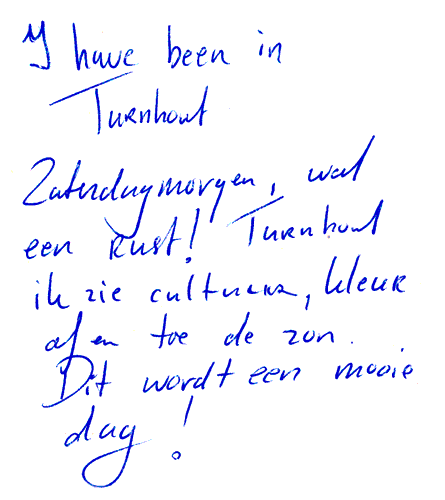 I have been in
Turnhout
Zaterdagmorgen, wat
een rust! Turnhout
ik zie cultuur, kleur
af en toe de zon.
Dit wordt een mooie
dag!